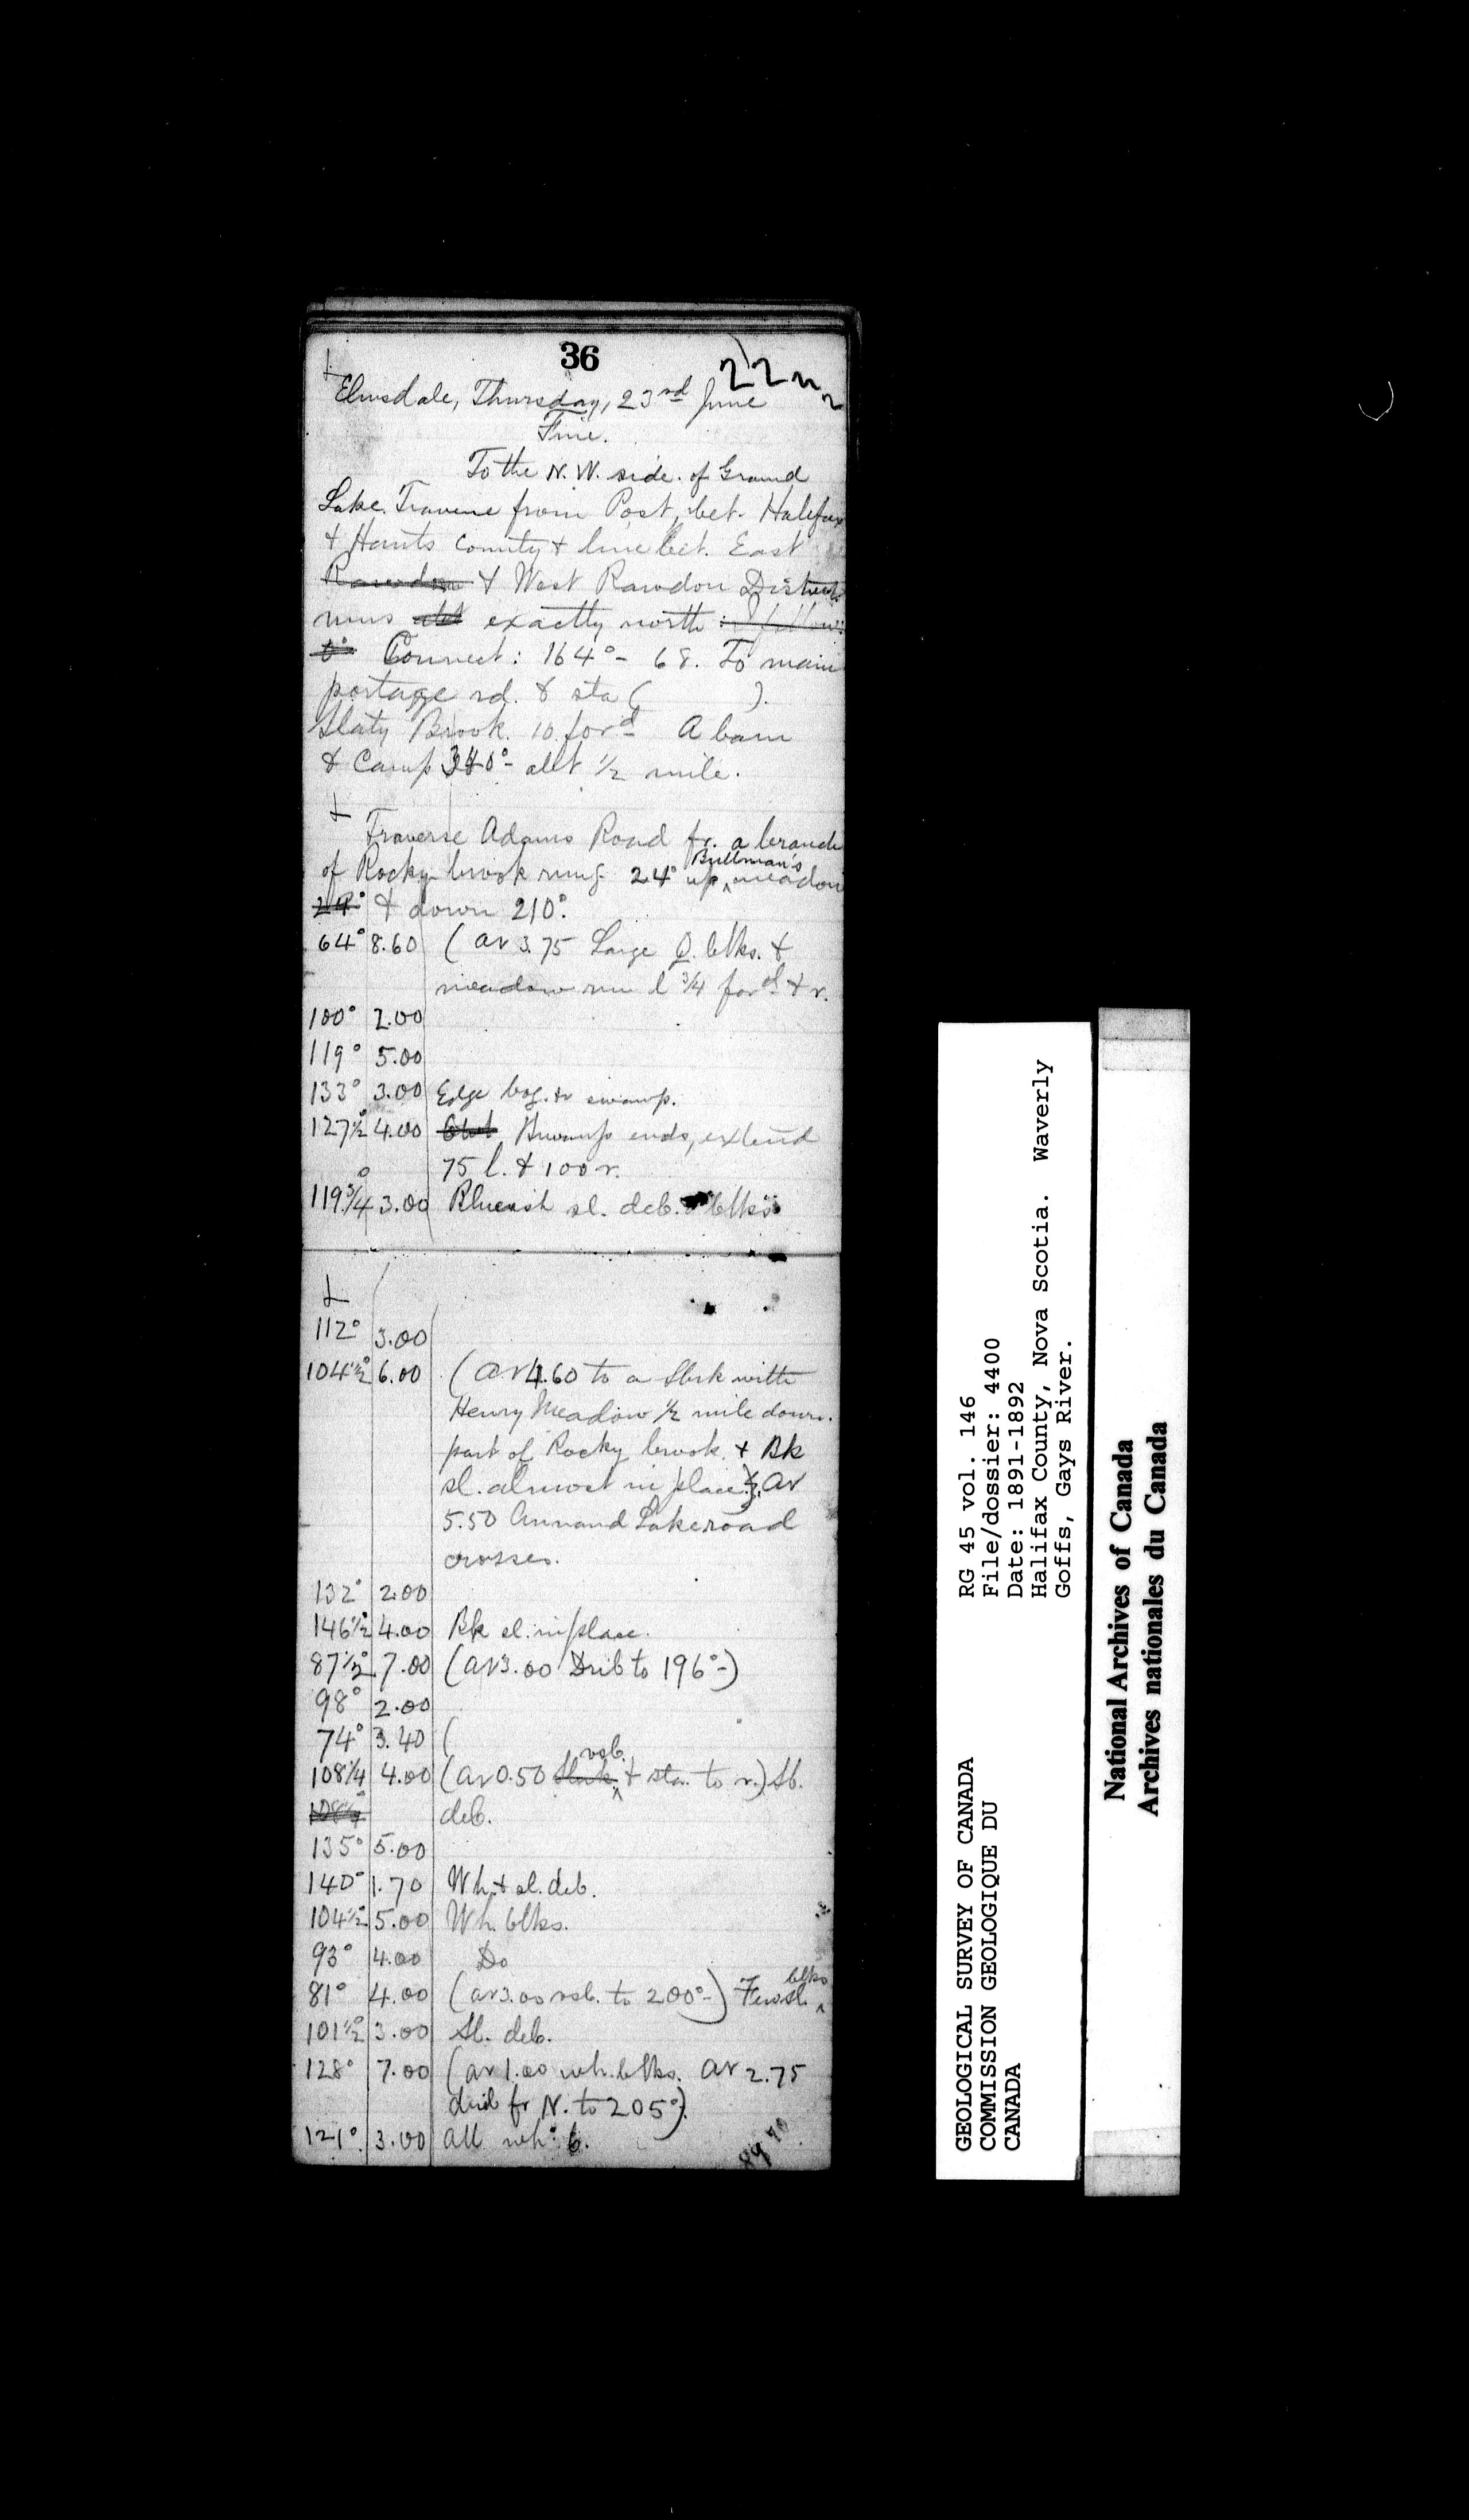 36
22
Elmsdale, Thursday, 23rd June
Fine.
To the N.W. side of Grand
Lake. Traverse from Post, bet. Halifax
& Hants County & line bet. East
Rawdon & West Rawdon District
runs exactly north
Connect: 164° - 68. To main
portage rd. & sta ( ).
Slaty Brook. 10 ford - A barn
& Camp 340° - abt ½ mile.
Traverse Adams Road fr. a branch
of Rocky brook rung. 24° up Bullman's meadow
24° & down 210°.
64° 8.60 (av 3.75 Large Q. blks. &
meadow run l ¾ ford & r.
100° 2.00
119° 5.00
133° 3.00 Edge bog. & swamp.
127½° 4.00 Swamp ends, extend
75 l. & 100 r.
119¾° 3.00 Blueish sl. deb. blks
112° 3.00
104½° 6.00 (av 4.60 to a Sbrk with
Henry Meadow ½ mile down.
part of Rocky brook. & Bk
sl. almost in place). av
5.50 Annand Lake road
crosses.
132° 2.00
146½° 4.00 Bk sl. in place.
87½° 7.00 (av 3.00 Drib to 196° -)
98° 2.00
74° 3.40 (
108¼ 4.00 (av 0.50 vsb. & sta. to r.) Sl.
deb.
135° 5.00
140° 1.70 Wh. & sl. deb.
104½° 5.00 Wh. blks.
93° 4.00 Do
81° 4.00 (av 3.00 vsb. to 200° -) Few sl. blks
101½° 3.00 Sl. deb.
128° 7.00 (av 1.00 wh. blks. av 2.75
drib fr N. to 205°).
121° 3.00 All wh. b.
GEOLOGICAL SURVEY OF CANADA
COMMISSION GEOLOGIQUE DU
CANADA
RG 45 vol. 146
File/dossier: 4400
Date: 1891-1892
Halifax County, Nova Scotia. Waverly
Goffs, Gays River.
National Archives of Canada
Archives nationales du Canada